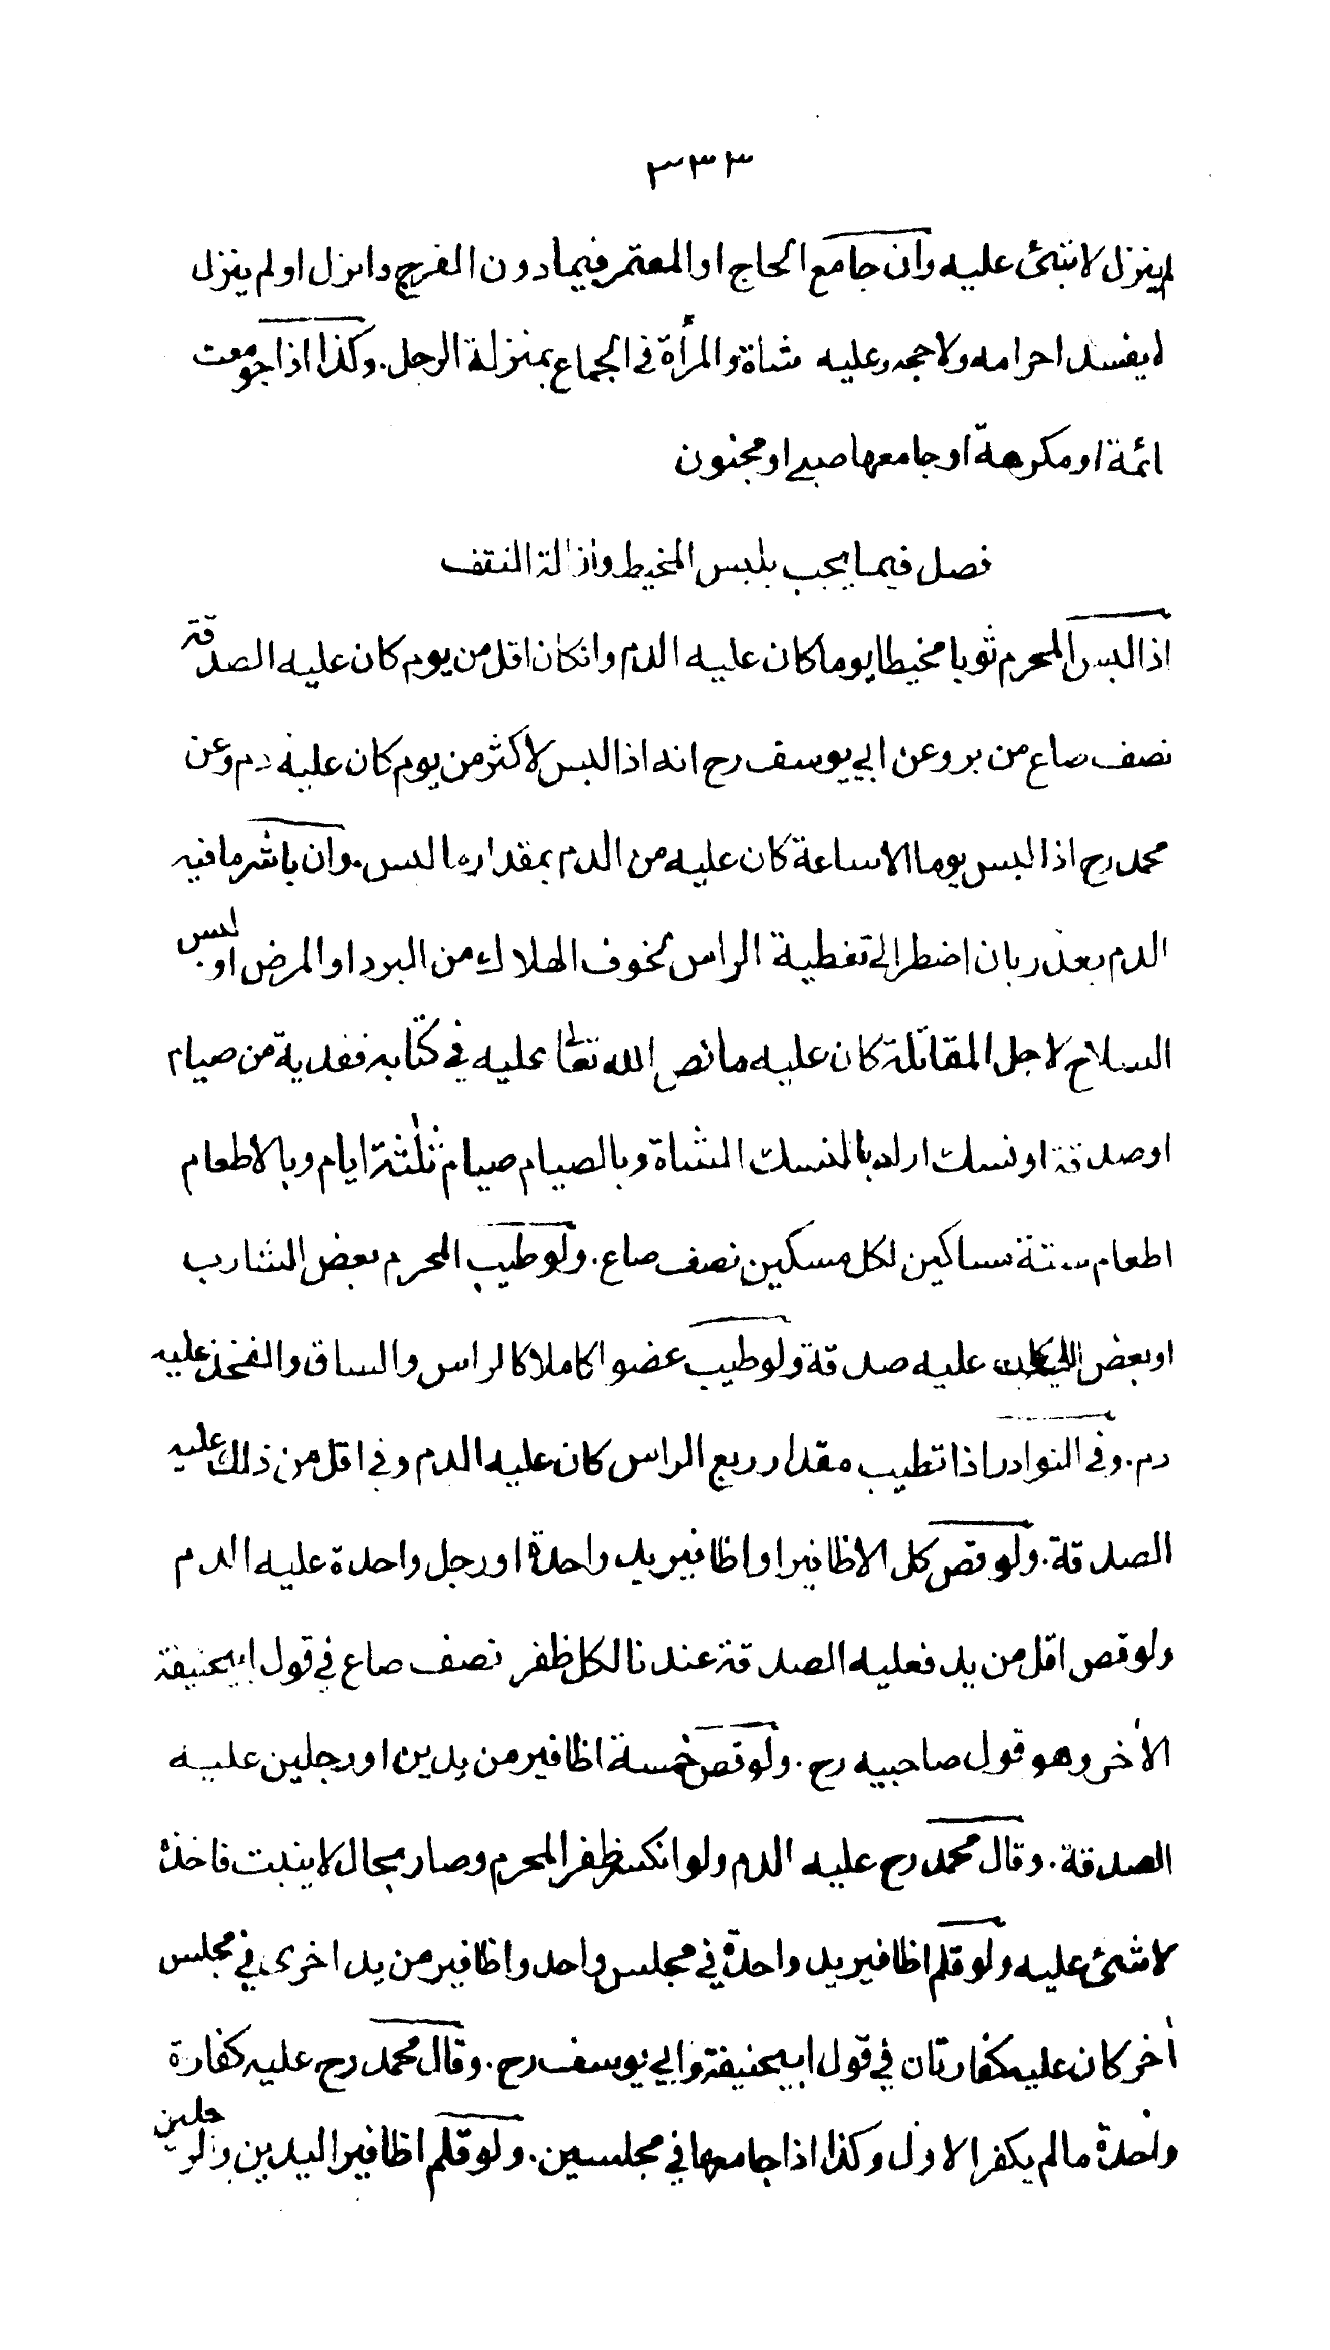 ٣٣٣
لم ينزل لا شئ عليه وان جامع الحاج او المعتمر فيما دون الفرج وانزل او لم ينزل
لا يفسد احرامه ولا حجه وعليه شاة والمرأة في الجماع بمنزلة الرجل. وكذا اذا جومعت
نائمة او مكرهة او جامعها صبي او مجنون
فصل فيما يجب بلبس المخيط وازالة التفث
اذا لبس المحرم ثوبا مخيطا يوما كان عليه الدم وان كان اقل من يوم كان عليه الصدقة
نصف صاع من بر وعن ابي يوسف رح انه اذا لبس لاكثر من يوم كان عليه دم وعن
محمد رح اذا لبس يوما الا ساعة كان عليه من الدم بمقدار ما لبس. وان باشر ما فيه
الدم بعذر بان اضطر الى تغطية الراس لخوف الهلاك من البرد او المرض او لبس
السلاح لاجل المقاتلة كان عليه ما نص الله تعالى عليه في كتابه ففدية من صيام
او صدقة او نسك اراد بالنسك الشاة وبالصيام صيام ثلثة ايام وبالاطعام
اطعام ستة مساكين لكل مسكين نصف صاع. ولو طيب المحرم بعض الشارب
او بعض عليه صدقة ولو طيب عضوا كاملا كالراس والساق والفخذ عليه
دم. وفي النوادر اذا تطيب مقدار ربع الراس كان عليه الدم وفي اقل من ذلك عليه
الصدقة. ولو قص كل الاظافير او اظافير يد واحدة او رجل واحدة عليه الدم
ولو قص اقل من يد فعليه الصدقة عندنا لكل ظفر نصف صاع في قول ابيحنيفة
الأخر وهو قول صاحبيه رح. ولو قص خمسة اظافير من يدين او رجلين عليه
الصدقة. وقال محمد رح عليه الدم ولو انكسر ظفر المحرم وصار بحال لا ينبت فاخذه
لا شئ عليه ولو قلم اظافير يد واحدة في مجلس واحد واظافير من يد اخرى في مجلس
أخر كان عليه كفارتان في قول ابيحنيفة وابي يوسف رح. وقال محمد رح عليه كفارة
واحدة ما لم يكفر الاول وكذا اذا جامعها في مجلسين. ولو قلم اظافير اليدين والرجلين